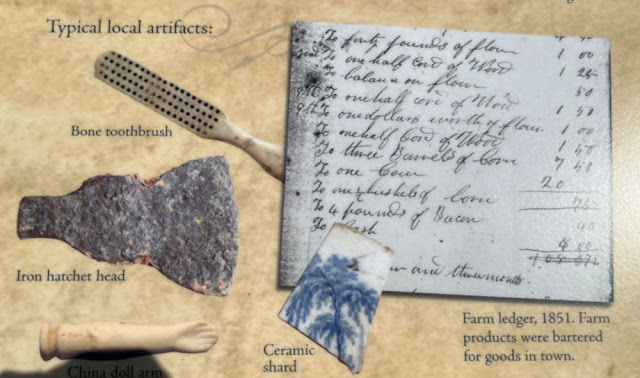 Typical local artifacts:
Bone toothbrush
Iron hatchet head
China doll arm
Ceramic
shard
To forty pounds of flour 1 00
To one half Cord of Wood 1 25
To balance on flour 50
To one half cord of Wood 1 50
To one dollars worth of flour 1 00
To one half Cord of Wood 1 50
To three Barrels of Corn 7 50
To one Cow 20
To one bushels of Corn 75
To 4 pounds of Bacon 40
To Cash 4 00
and three months.
Farm ledger, 1851. Farm
products were bartered
for goods in town.